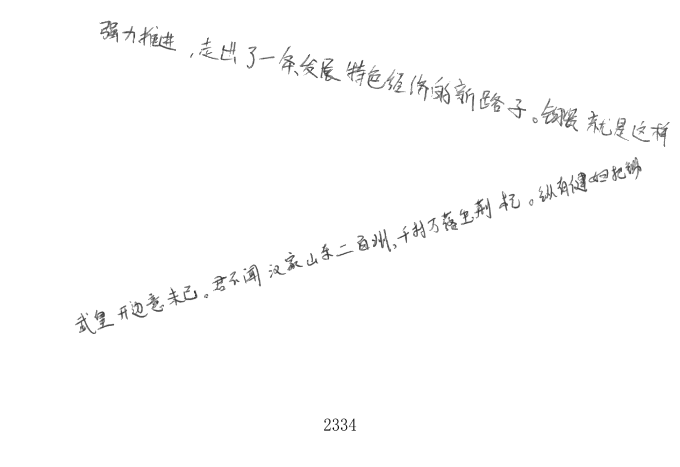 强力推进，走出了一条发展特色经济的新路子。就是这样
武皇开边意未已。君不闻汉家山东二百州，千村万落生荆杞。纵有健妇把锄
2334